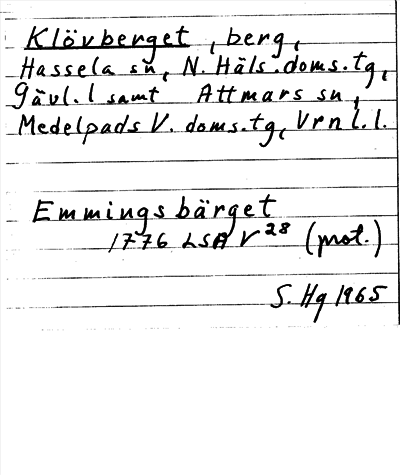 Klövberget, berg,
Hassela sn, N. Häls. doms.tg,
Gävl. l samt Attmars sn,
Medelpads V. doms.tg, Vrnl. l.
Emmingsbärget
1776 LSA V 28 (prot.)
S. Hg 1965